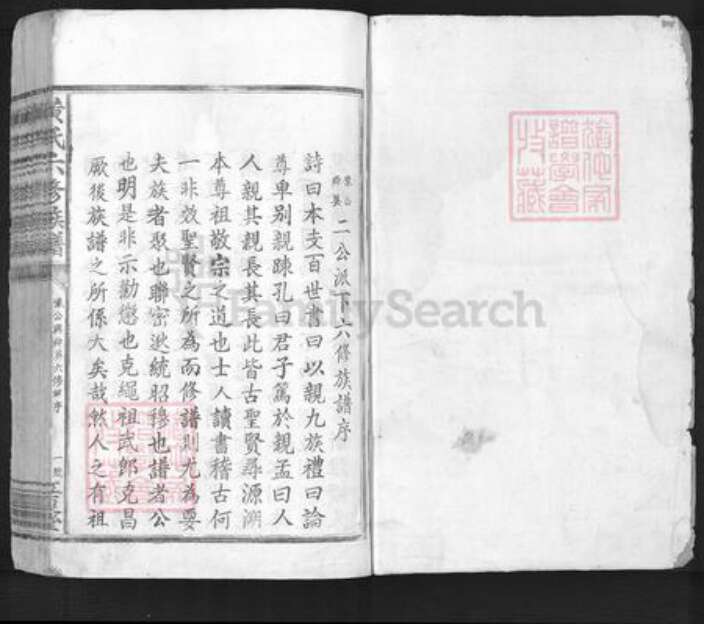 二公派下六修族譜序
詩曰本支百世書曰以親九族禮曰論
尊卑别親踈孔曰君子篤於親孟曰人
人親其親長其長此皆古聖賢尋源溯
本尊祖敬宗之道也士人讀書稽古何
一非效聖賢之所為而修譜則尤為要
夫族者聚也聯密遡統昭穆也譜者公
也明是非示勸懲也克繩祖武郎克昌
厥後族譜之所係大矣哉然人之有祖
黄氏六修族譜
FamilySearch